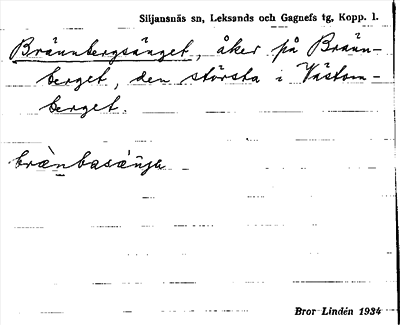 Siljansnäs sn, Leksands och Gagnefs tg, Kopp. l.
Brännbergsänget, åker på Bränn-
berget, den största i Västom-
berget.
Bror Lindén 1934